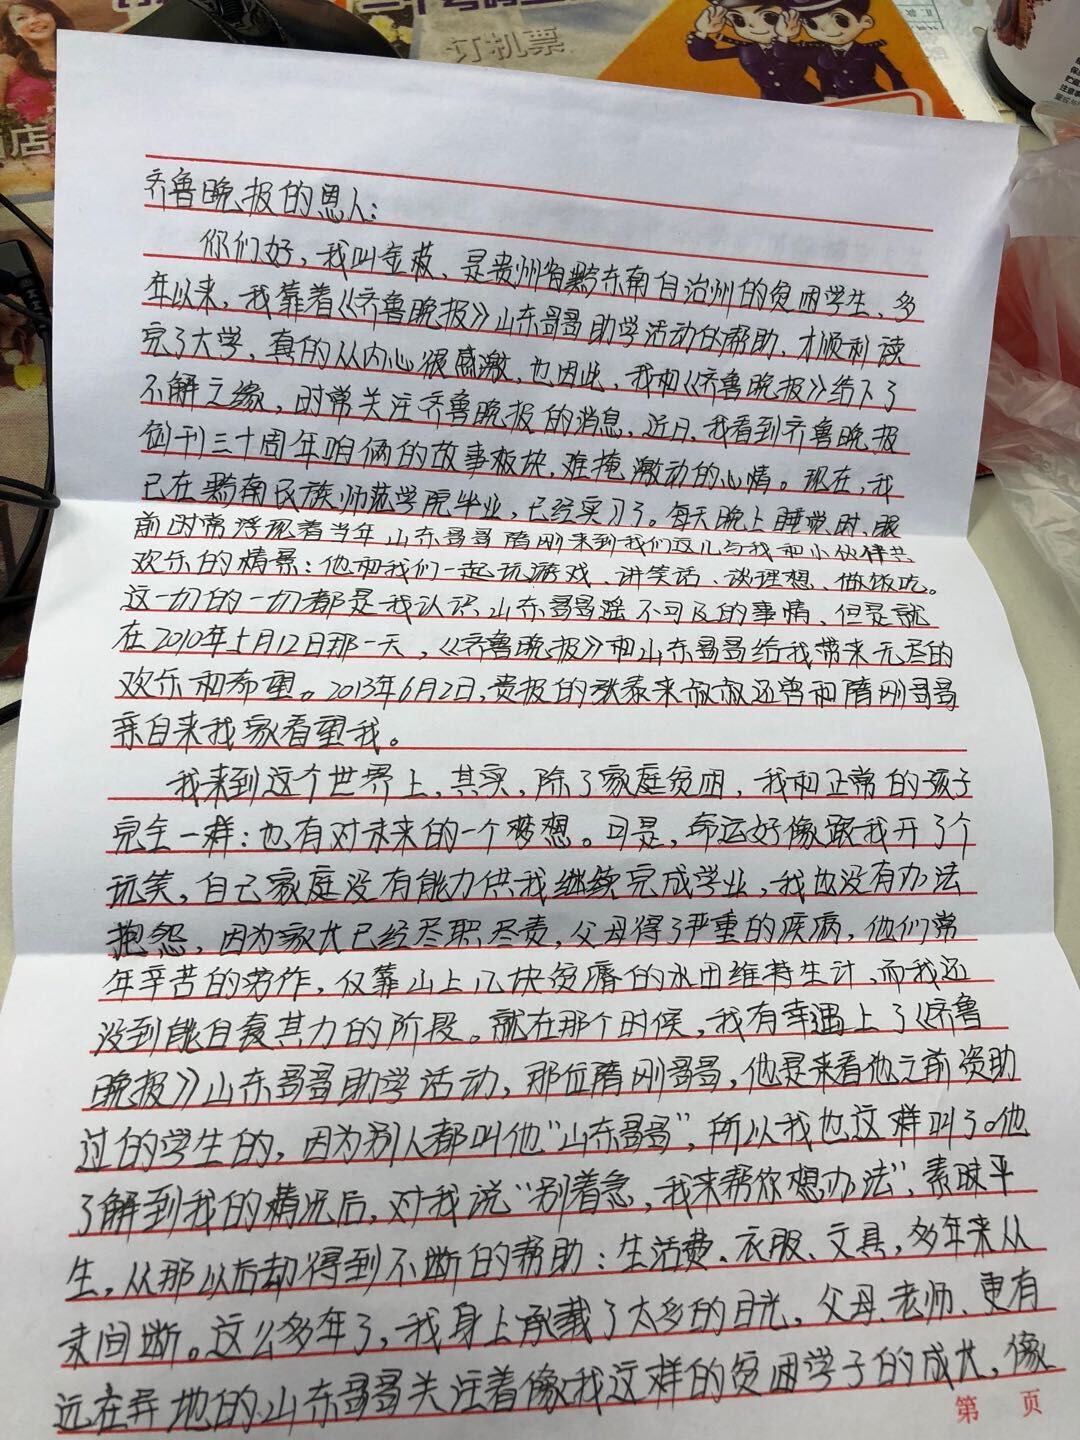 订机票
店
齐鲁晚报的恩人：
你们好，我叫金菽，是贵州省黔东南自治州的贫困学生，多
年以来，我靠着《齐鲁晚报》山东哥哥助学活动的帮助，才顺利读
完了大学，真的从内心很感激，也因此，我和《齐鲁晚报》结下了
不解之缘，时常关注齐鲁晚报的消息，近日，我看到齐鲁晚报
创刊三十周年咱俩的故事板块，难掩激动的心情。现在，我
已在黔南民族师范学院毕业，已经实习了。每天晚上睡觉时，眼
前时常浮现着当年山东哥哥隋刚来到我们这儿与我和小伙伴共
欢乐的情景：他和我们一起玩游戏、讲笑话、谈理想、做饭吃。
这一切的一切都是我认识山东哥哥遥不可及的事情，但是就
在2010年5月12日那一天，《齐鲁晚报》和山东哥哥给我带来无尽的
欢乐和希望。2013年6月2日，贵报的张泰来叔叔还曾和隋刚哥哥
亲自来我家看望我。
我来到这个世界上，其实，除了家庭贫困，我和正常的孩子
完全一样：也有对未来的一个梦想。可是，命运好像跟我开了个
玩笑，自己家庭没有能力供我继续完成学业，我也没有办法
抱怨，因为家大已经尽职尽责，父母得了严重的疾病，他们常
年辛苦的劳作，仅靠山上几块贫瘠的水田维持生计，而我还
没到能自食其力的阶段。就在那个时候，我有幸遇上了《齐鲁
晚报》山东哥哥助学活动，那位隋刚哥哥，他是来看他之前资助
过的学生的，因为别人都叫他“山东哥哥”，所以我也这样叫了。他
了解到我的情况后，对我说“别着急，我来帮你想办法”，素昧平
生，从那以后却得到不断的帮助：生活费、衣服、文具，多年来从
未间断。这么多年了，我身上承载了太多的目光，父母、老师、更有
远在异地的山东哥哥关注着像我这样的贫困学子的成长，像
第 页